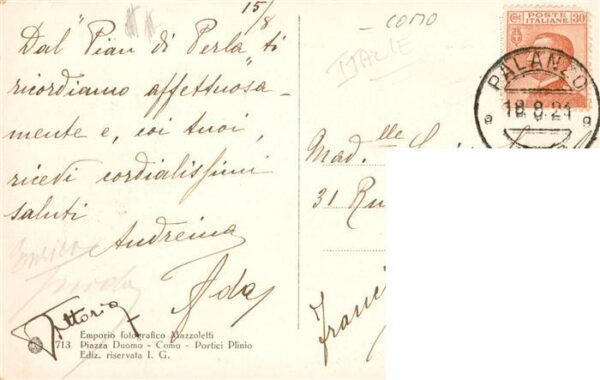 15/8
Dal "Pian di Perla" ti
ricordiamo affettuosa-
mente e, coi tuoi,
ricevi cordialissimi
saluti
Andreina
Ada
Vittoria
Enrico
Emporio fotografico Mazzoletti
713 Piazza Duomo - Como - Portici Plinio
Ediz. riservata I. G.
COMO
ITALIE
POSTE
ITALIANE
30
PALANZO
18.8.21
Mad.lle
31 Ru
Franci